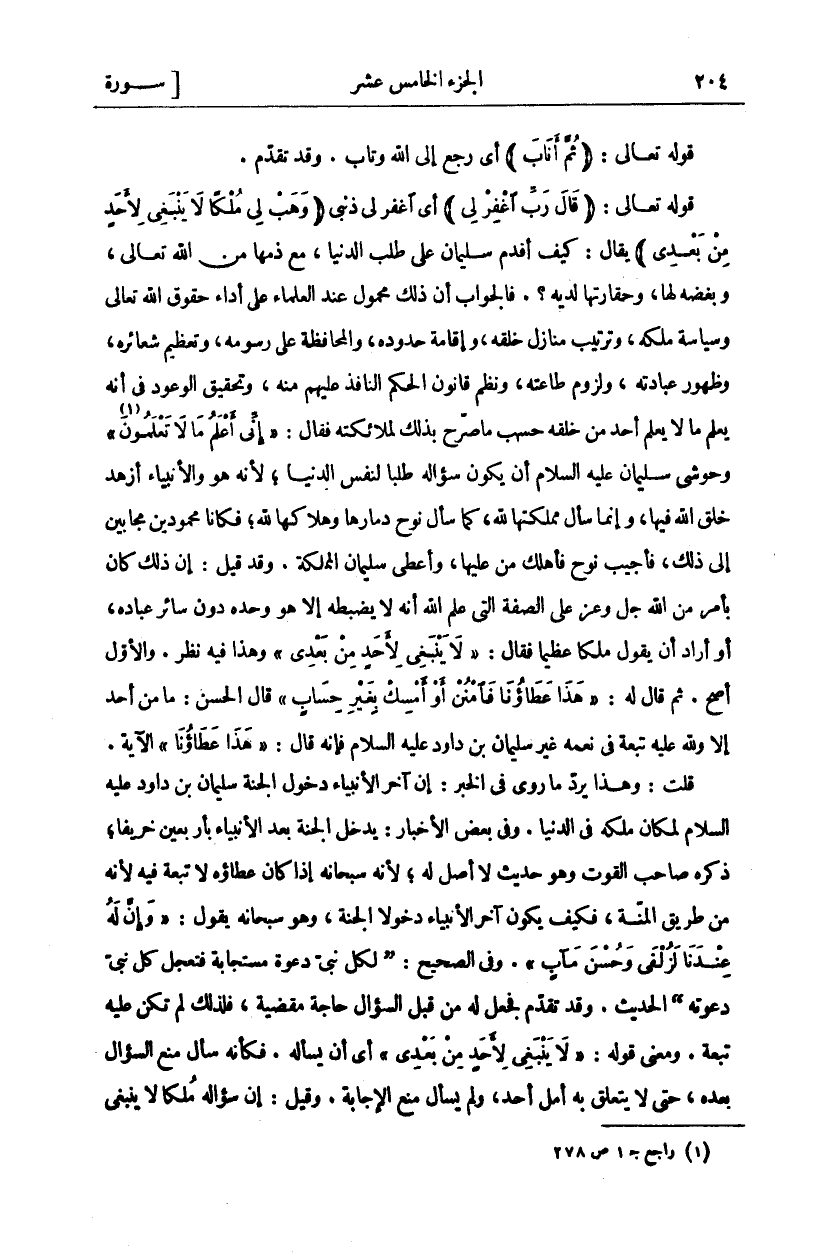 ٢٠٤ الجزء الخامس عشر [ ســورة
قوله تعـالى : ﴿ ثُمَّ أَنَابَ ﴾ أى رجع إلى الله وتاب . وقد تقدّم .
قوله تعـالى : ﴿ قَالَ رَبِّ ٱغْفِرْ لِى ﴾ أى ٱغفر لى ذنبى ﴿ وَهَبْ لِى مُلْكًا لَا يَنْبَغِى لِأَحَدٍ
مِنْ بَعْـدِى ﴾ يقال : كيف أقدم سـليمان على طلب الدنيا ، مع ذمها من الله تعـالى ،
وبغضه لها، وحقارتها لديه ؟ . فالجواب أن ذلك محمول عند العلماء على أداء حقوق الله تعالى
وسياسة ملكه ، وترتيب منازل خلقه ، وإقامة حدوده، والمحافظة على رسومه ، وتعظيم شعائره،
وظهور عبادته ، ولزوم طاعته، ونظم قانون الحكم النافذ عليهم منه ، وتحقيق الوعود فى أنه
يعلم ما لا يعلم أحد من خلقه حسب ماصرّح بذلك لملائكته فقال : « إِنِّى أَعْلَمُ مَا لَا تَعْلَمُونَ(١) »
وحوشى سـليمان عليه السلام أن يكون سؤاله طلبا لنفس الدنيـا ؛ لأنه هو والأنبياء أزهد
خلق الله فيها، وإنما سأل مملكتها لله، كما سأل نوح دمارها وهلاكها لله؛ فكانا محمودين مجابين
إلى ذلك، فأجيب نوح فأهلك من عليها، وأعطى سليمان المملكة . وقد قيل : إن ذلك كان
بأمر من الله جل وعز على الصفة التى علم الله أنه لا يضبطه إلا هو وحده دون سائر عباده،
أو أراد أن يقول ملكا عظيما فقال : « لَا يَنْبَغِى لِأَحَدٍ مِنْ بَعْدِى » وهذا فيه نظر . والأوّل
أصح . ثم قال له : « هَذَا عَطَاؤُنَا فَٱمْنُنْ أَوْ أَمْسِكْ بِغَيْرِ حِسَابٍ » قال الحسن : ما من أحد
إلا ولله عليه تبعة فى نعمه غير سليمان بن داود عليه السلام فإنه قال : « هَذَا عَطَاؤُنَا » الآية .
قلت : وهـذا يردّ ما روى فى الخبر : إن آخر الأنبياء دخول الجنة سليمان بن داود عليه
السلام لمكان ملكه فى الدنيا . وفى بعض الأخبار : يدخل الجنة بعد الأنبياء بأربعين خريفا؛
ذكره صاحب القوت وهو حديث لا أصل له ؛ لأنه سبحانه إذا كان عطاؤه لا تبعة فيه لأنه
من طريق المنّـة ، فكيف يكون آخر الأنبياء دخولا الجنة ، وهو سبحانه يقول : « وَإِنَّ لَهُ
عِنْـدَنَا لَزُلْفَى وَحُسْنَ مَآبٍ » . وفى الصحيح : ” لكل نبىّ دعوة مستجابة فتعجل كل نبىّ
دعوته “ الحديث . وقد تقدّم فجعل له من قبل السؤال حاجة مقضية ، فلذلك لم تكن عليه
تبعة . ومعنى قوله : « لَا يَنْبَغِى لِأَحَدٍ مِنْ بَعْدِى » أى أن يسأله . فكأنه سأل منع السؤال
بعده ، حتى لا يتعلق به أمل أحد، ولم يسأل منع الإجابة . وقيل : إن سؤاله مُلكا لا ينبغى
(١) راجع جـ ١ ص ٢٧٨